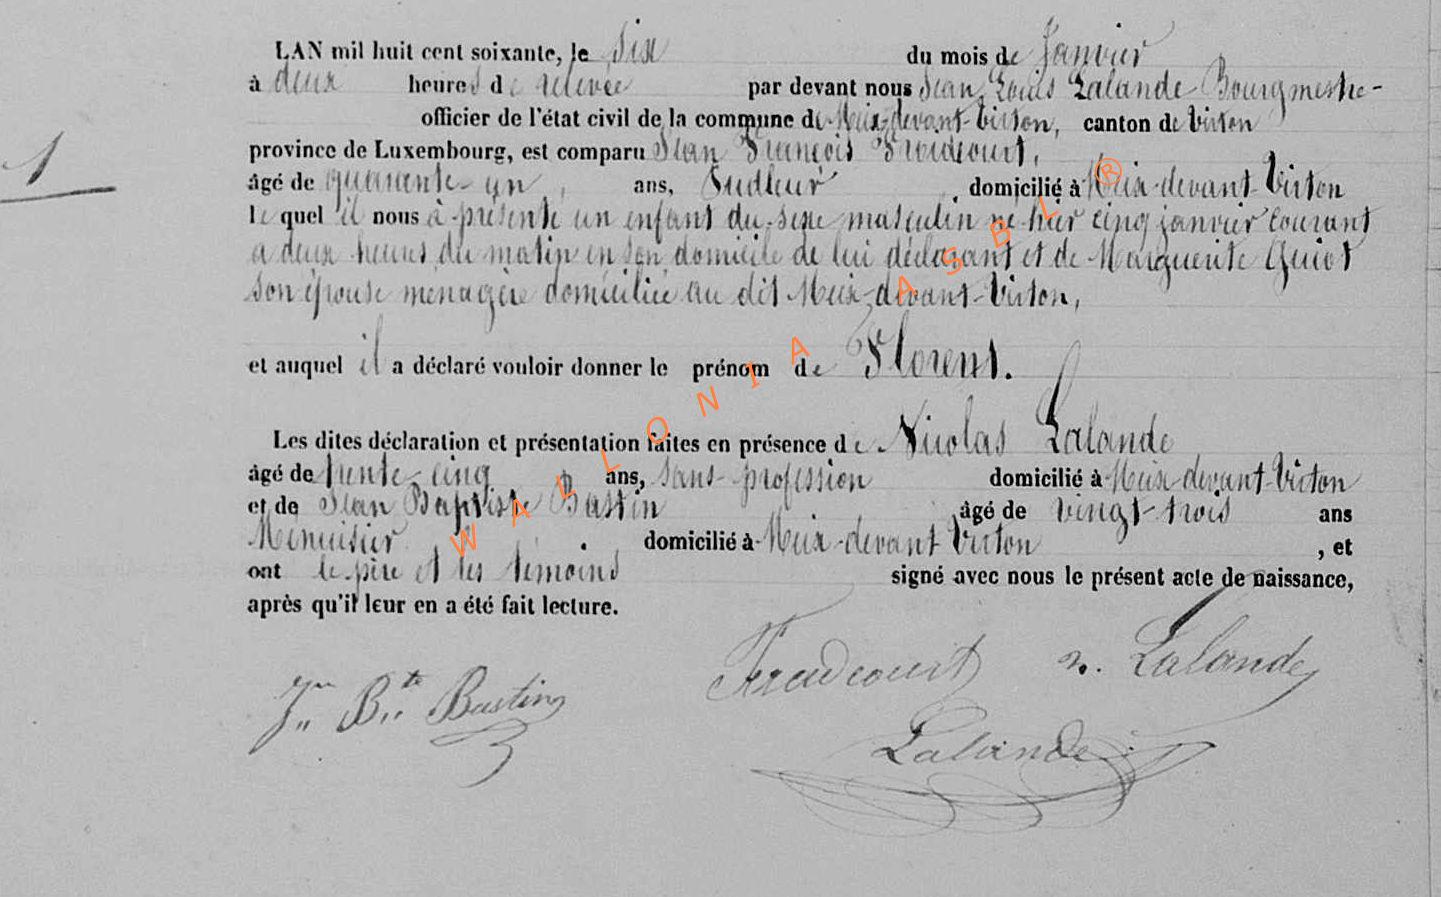 LAN mil huit cent soixante, le Six du mois de Janvier
à deux heures de relevée par devant nous Jean Louis Lalande Bourgmestre-
officier de l'état civil de la commune de Meix-devant-Virton, canton de Virton
province de Luxembourg, est comparu Jean François Froidcourt,
âgé de quarante-un, ans, domicilié à Meix-devant-Virton
le quel il nous à présenté un enfant du sexe masculin né hier cinq janvier courant
a deux heures du matin en son domicile de lui déclarant et de Marguerite Guiot
son épouse ménagère domiciliée au dit Meix-devant-Virton,
1
et auquel il a déclaré vouloir donner le prénom de Florent.
Les dites déclaration et présentation faites en présence de Nicolas Lalande
âgé de trente-cinq ans, sans profession domicilié à Meix-devant-Virton
et de Jean Baptiste Bastin âgé de vingt-trois ans
Menuisier domicilié à Meix-devant Virton, et
ont le père et les témoins signé avec nous le présent acte de naissance,
après qu'il leur en a été fait lecture.
Froidcourt n. Lalande
Jn Bte Bastin
Lalande
WALLONIA ASBL ®